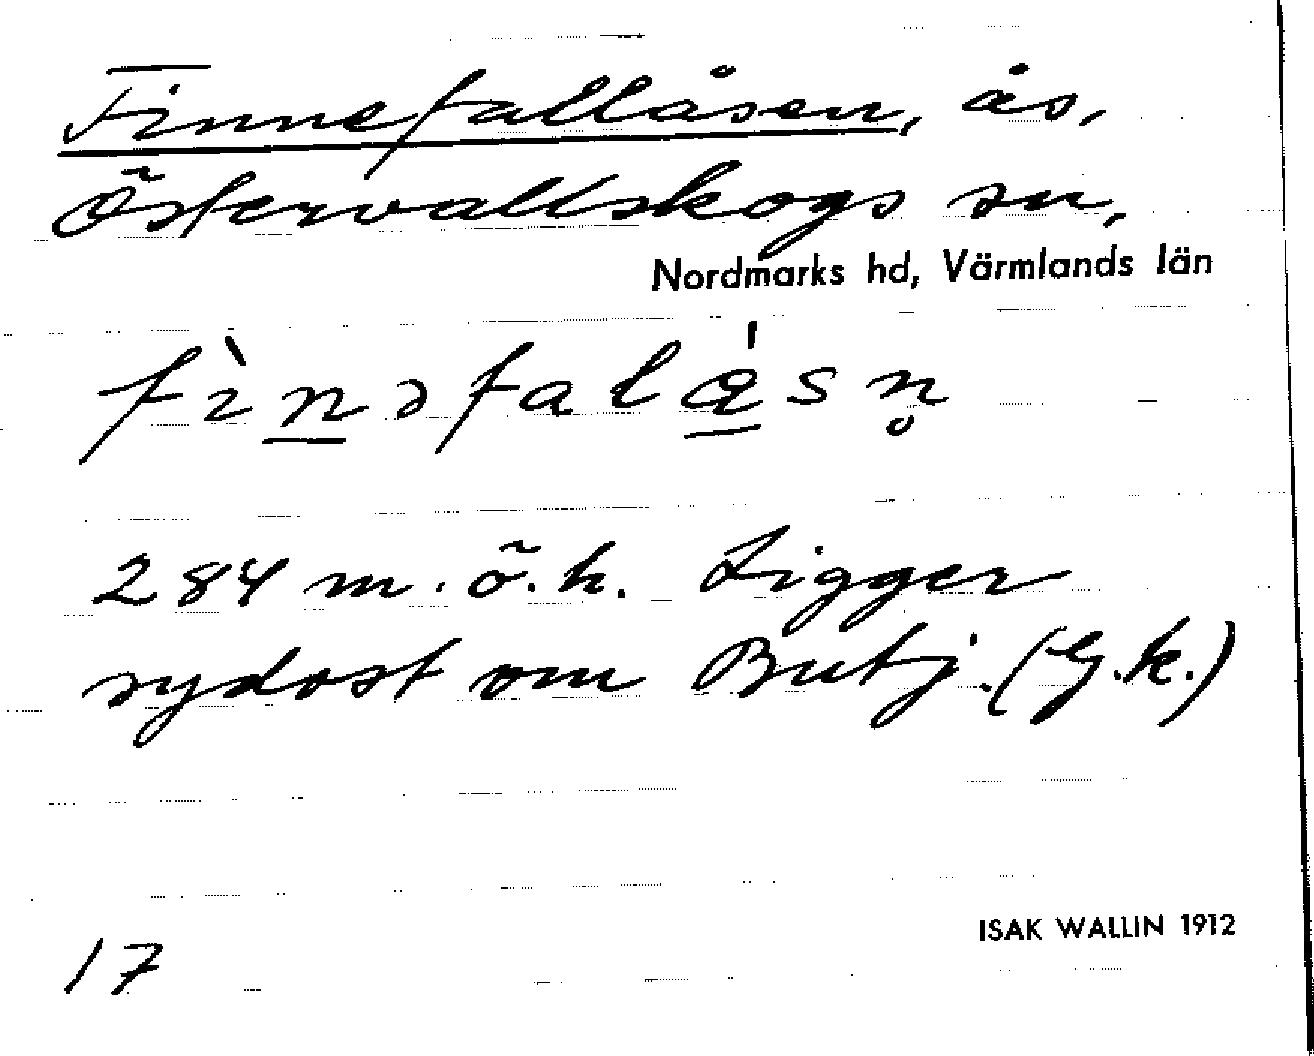 Finnefallåsen, ås,
Östervallskogs sn,
Nordmarks hd, Värmlands län
fìnəfalǻsn̥
284 m. ö. h. Ligger
sydost om Butj. (G.k.)
ISAK WALLIN 1912
17